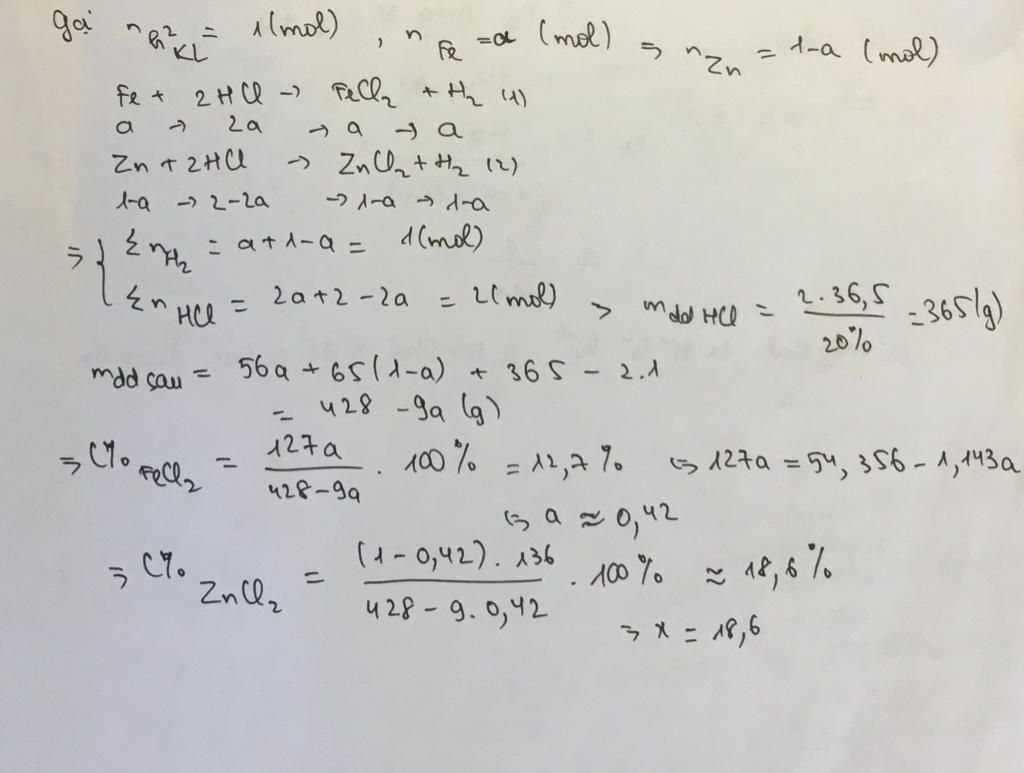 Gọi n h² KL = 1 (mol), n Fe = a (mol) ⇒ n Zn = 1-a (mol)
Fe + 2HCl → FeCl₂ + H₂ (1)
a → 2a → a → a
Zn + 2HCl → ZnCl₂ + H₂ (2)
1-a → 2-2a → 1-a → 1-a
⇒ { Σ n H₂ = a + 1 - a = 1 (mol)
Σ n HCl = 2a + 2 - 2a = 2 (mol) > mdd HCl = 2.36,5 / 20% = 365 (g)
mdd sau = 56a + 65(1-a) + 365 - 2.1
= 428 - 9a (g)
⇒ C% FeCl₂ = 127a / 428-9a . 100% = 12,7% ⇔ 127a = 54,356 - 1,143a
⇔ a ≈ 0,42
⇒ C% ZnCl₂ = (1-0,42).136 / 428 - 9.0,42 . 100% ≈ 18,6%
⇒ x = 18,6